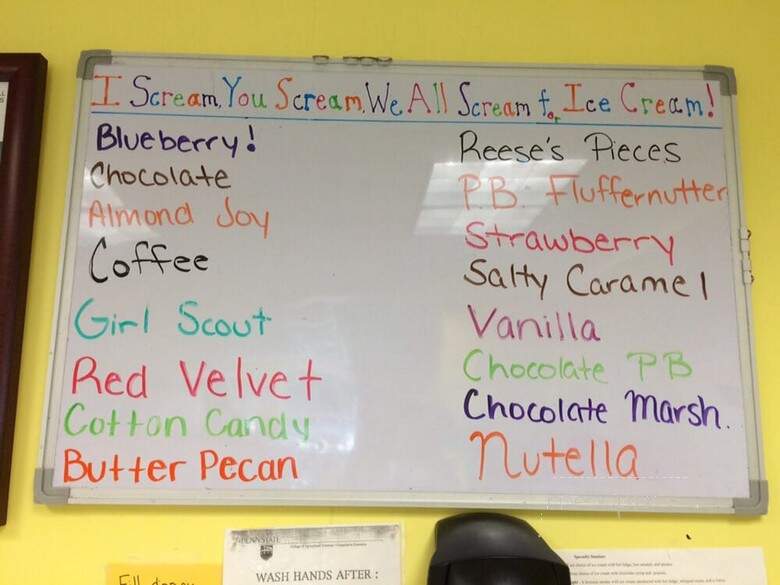 I Scream, You Scream, We All Scream for Ice Cream!
Blueberry!
Chocolate
Almond Joy
Coffee
Girl Scout
Red Velvet
Cotton Candy
Butter Pecan
Reese's Pieces
P.B. Fluffernutter
Strawberry
Salty Caramel
Vanilla
Chocolate PB
Chocolate Marsh.
Nutella
PENNSTATE
WASH HANDS AFTER :